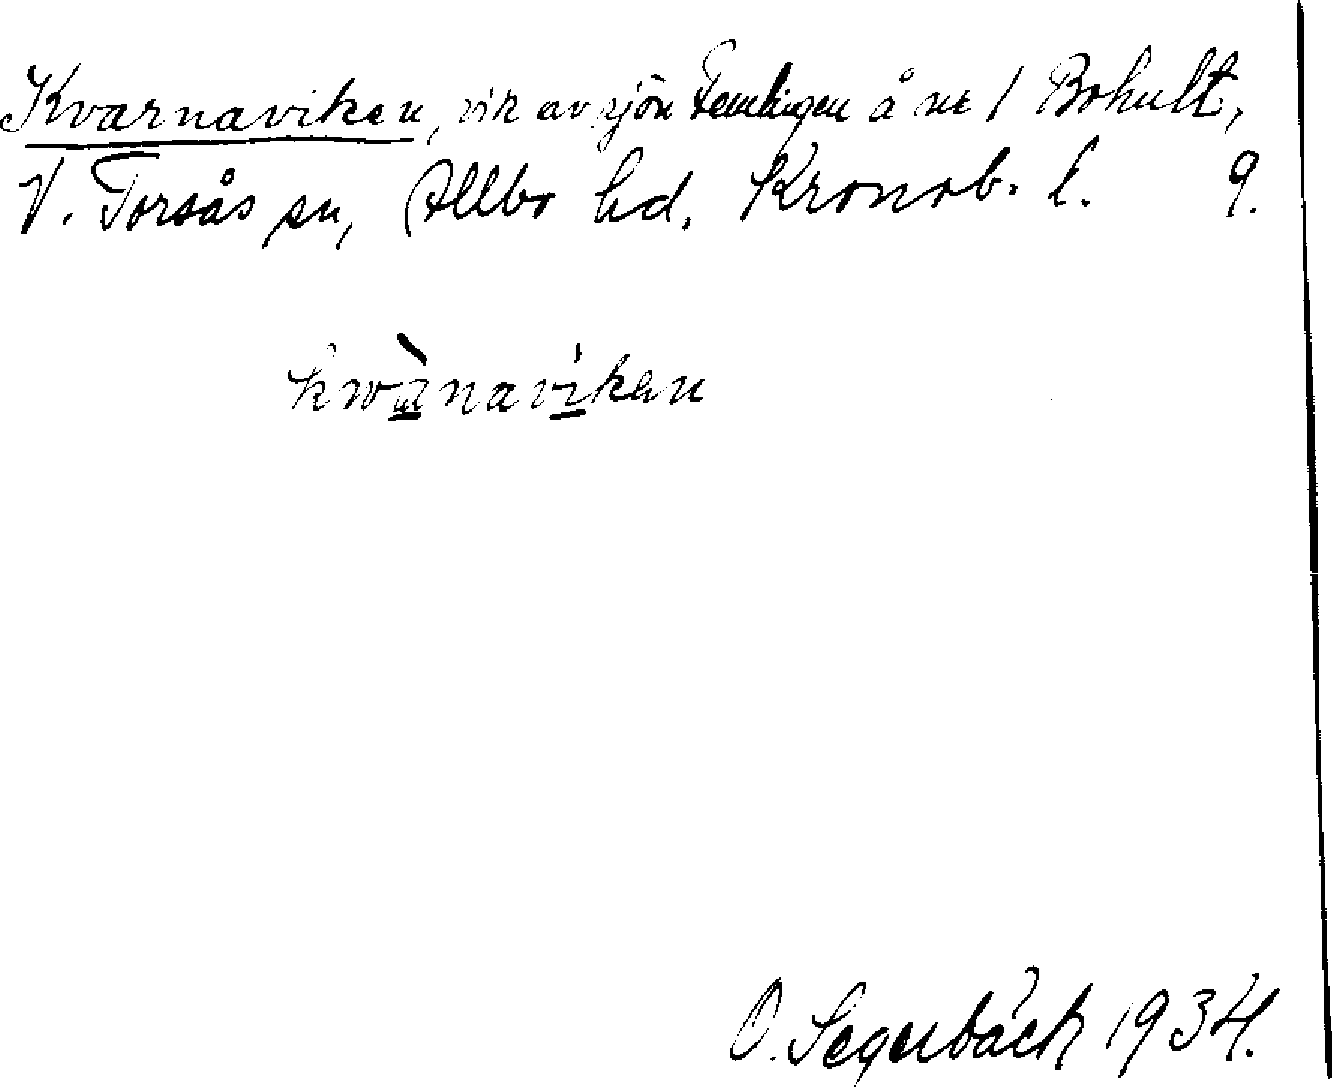 Kvarnaviken, vik av sjön Femlingen å nr 1 Bohult,
V. Torsås sn, Allbo hd, Kronob. l. 9.
kwànavíken
O. Segerbäck 1934.